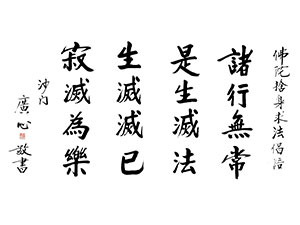 佛陀捨身求法偈語
諸行無常
是生滅法
生滅滅已
寂滅為樂
沙門
廣心
敬書